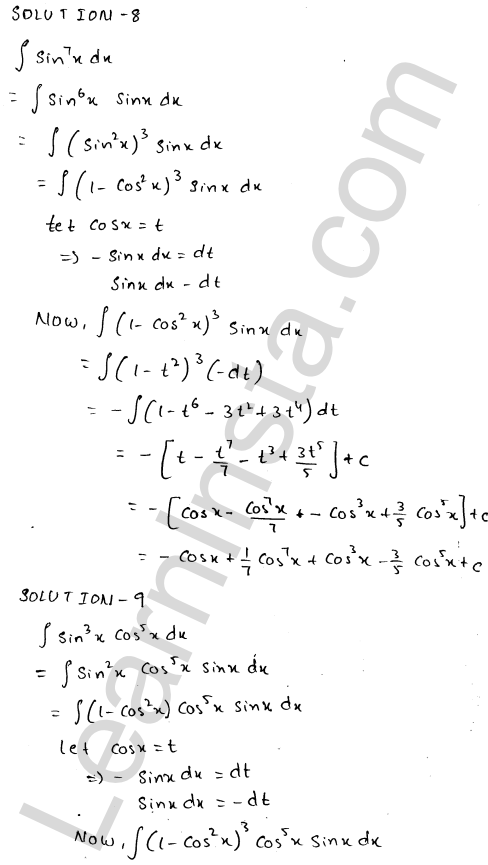 SOLUTION-8
∫ sin⁷x dx
= ∫ sin⁶x sinx dx
= ∫ (sin²x)³ sinx dx
= ∫ (1 - cos²x)³ sinx dx
let cosx = t
=> - sinx dx = dt
sinx dx - dt
Now, ∫ (1 - cos²x)³ sinx dx
= ∫ (1 - t²)³ (-dt)
= - ∫ (1 - t⁶ - 3t² + 3t⁴) dt
= - [t - t⁷/7 - t³ + 3t⁵/5] + c
= - [cosx - cos⁷x/7 + - cos³x + 3/5 cos⁵x] + c
= - cosx + 1/7 cos⁷x + cos³x - 3/5 cos⁵x + c
SOLUTION-9
∫ sin³x cos⁵x dx
= ∫ sin²x cos⁵x sinx dx
= ∫ (1 - cos²x) cos⁵x sinx dx
let cosx = t
=> - sinx dx = dt
sinx dx = - dt
Now, ∫ (1 - cos²x)³ cos⁵x sinx dx
LearnInsta.com